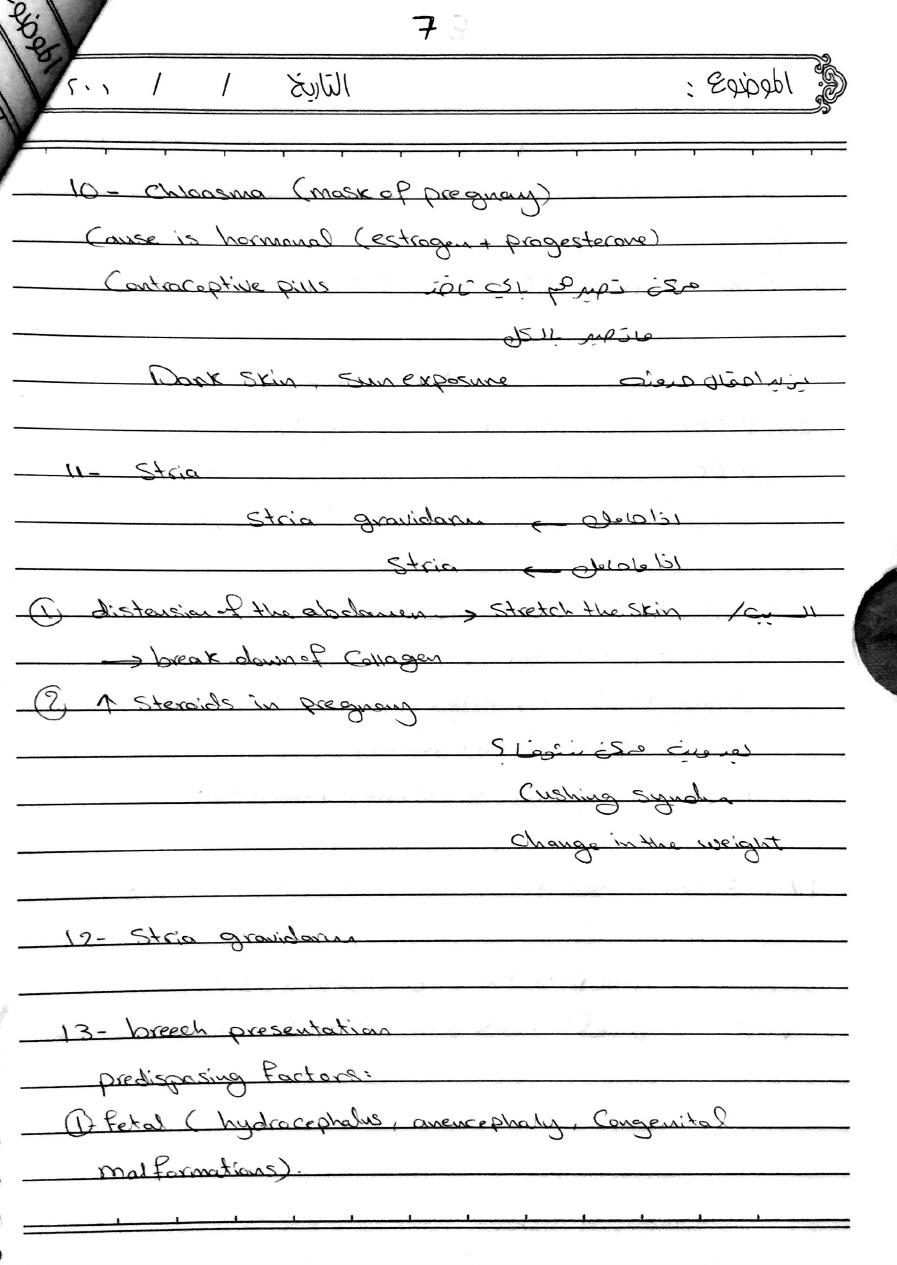 7
الموضوع
الموضوع : التاريخ / / ٢٠٠١
10 - Chloasma (mask of pregnancy)
Cause is hormonal (estrogen + progesterone)
Contraceptive pills ممكن تصير هم
ماتصير بالكل
Dark Skin, Sun exposure يزيد احتمال
11- Stria
Stria gravidarum ← اذا حامل
Stria ← اذا ما حامل
① distension of the abdomen → Stretch the skin السبب /
→ break down of Collagen
② ↑ Steroids in pregnancy
ممكن نشوفها ؟
Cushing synd.
Change in the weight
12- Stria gravidarum
13- breech presentation
predisposing factors:
① fetal ( hydrocephalus, anencephaly, Congenital
malformations).